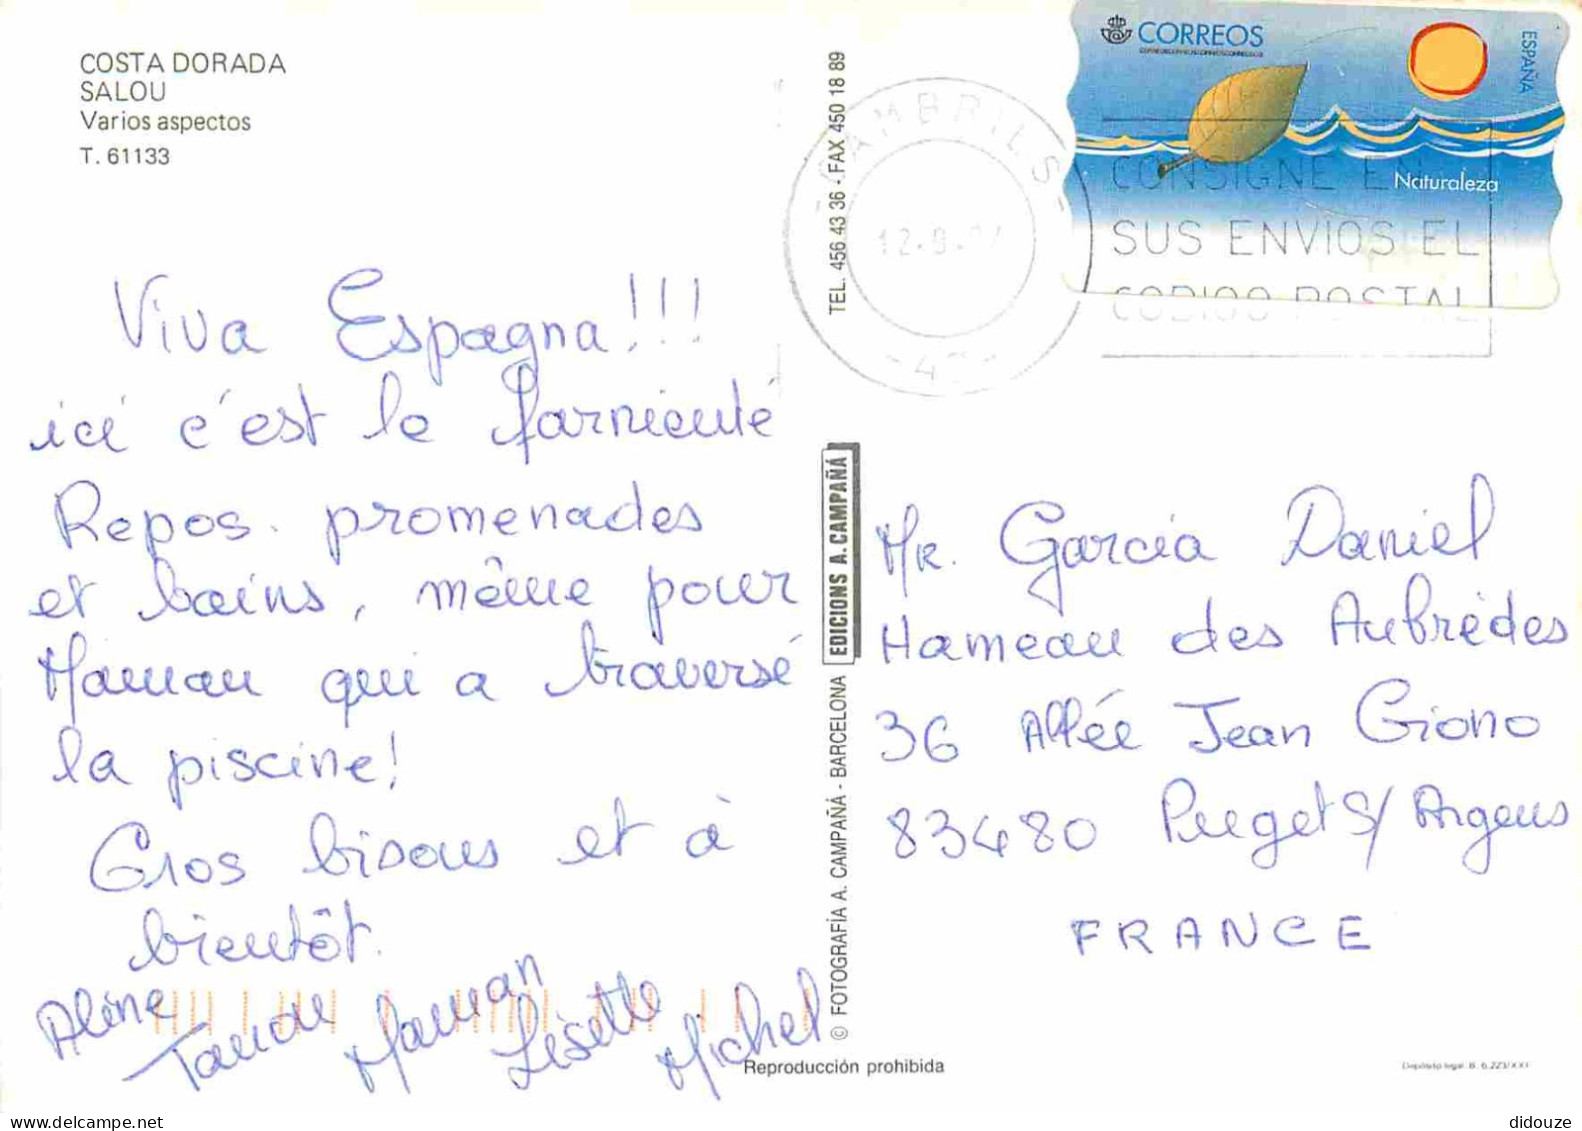 COSTA DORADA
SALOU
Varios aspectos
T. 61133
Viva Espagna!!!
ici c'est le farnienté
Repos. promenades
et bains, même pour
Maman qui a traversé
la piscine!
Gros bisous et à
bientôt.
Aline
Maman
Lisette
Michel
TEL. 456 43 36 - FAX 450 18 89
EDICIONS A. CAMPAÑÁ
© FOTOGRAFÍA A. CAMPAÑÁ - BARCELONA
Reproducción prohibida
CORREOS
ESPAÑA
Naturaleza
CAMBRILS
CONSIGNE EN
SUS ENVIOS EL
CODIGO POSTAL
Mr. Garcia Daniel
Hameau des Aubrèdes
36 Allée Jean Giono
83480 Puget s/ Argens
FRANCE
Depósito legal B. 6.223/XXI
didouze